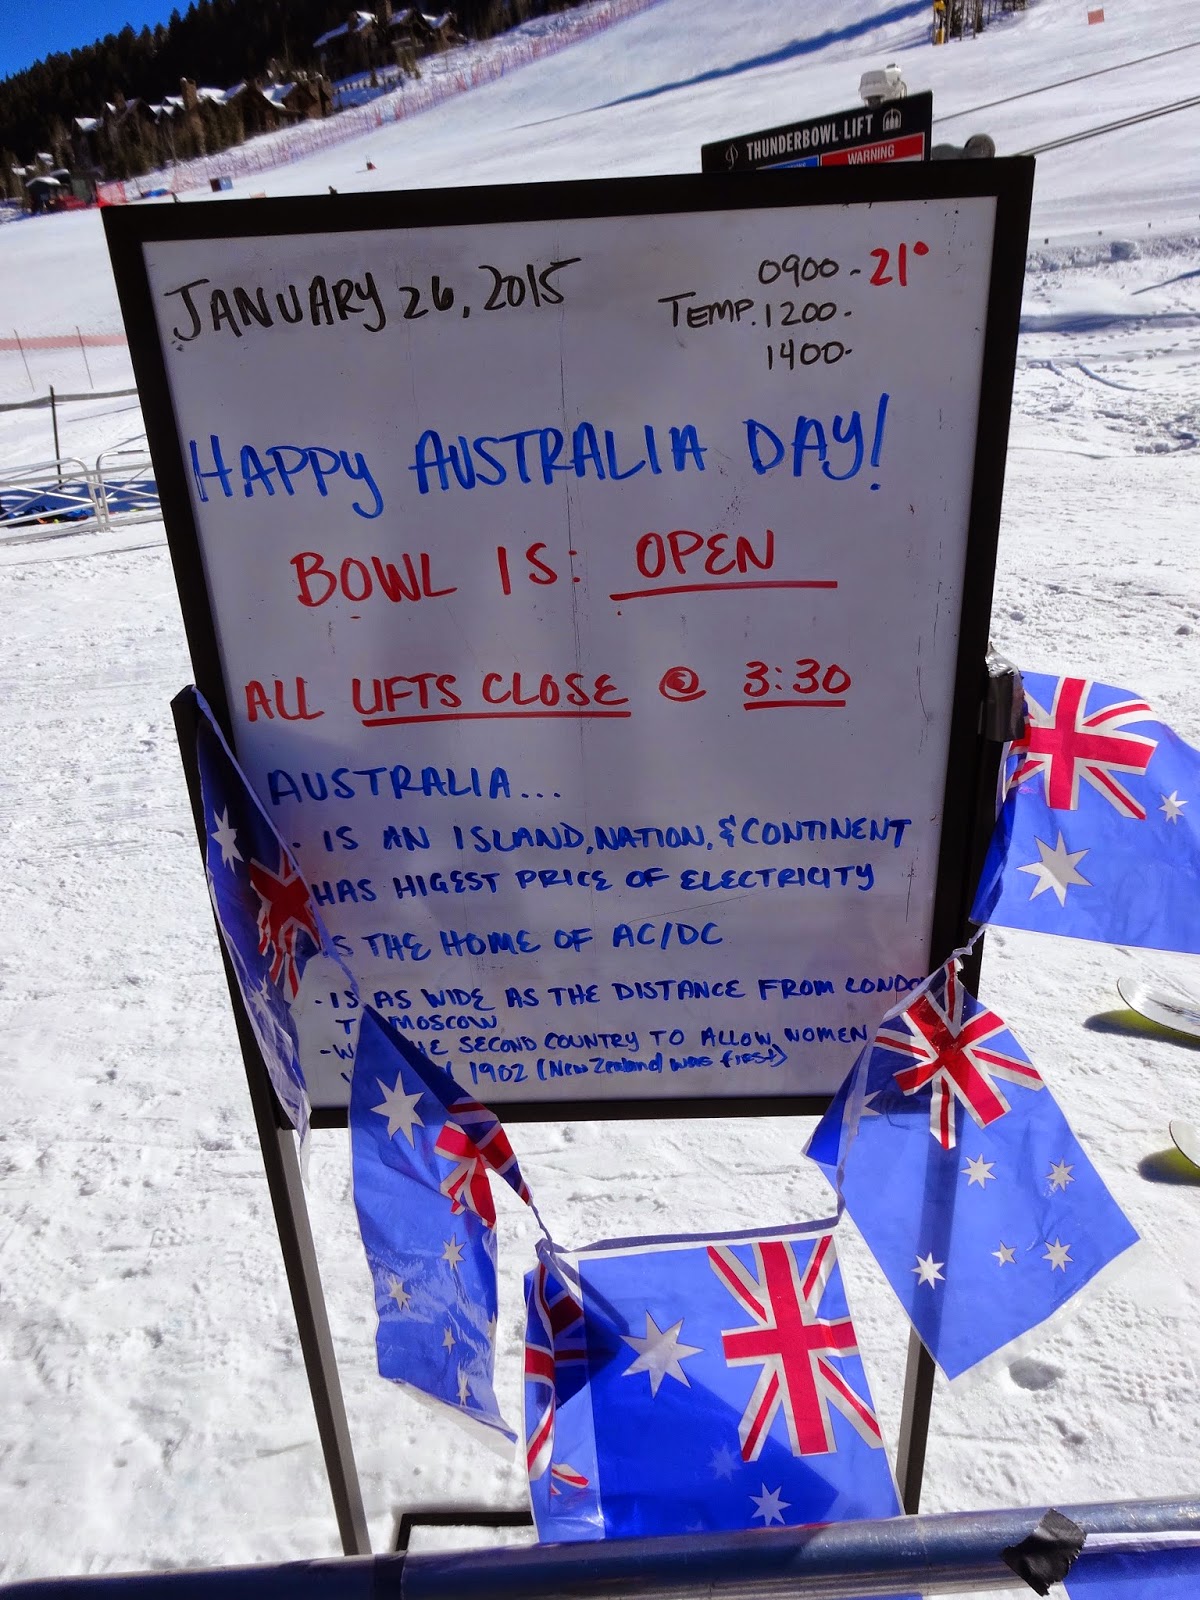 THUNDERBOWL LIFT
WARNING
JANUARY 26, 2015
0900 - 21°
TEMP. 1200 -
1400 -
HAPPY AUSTRALIA DAY!
BOWL IS: OPEN
ALL LIFTS CLOSE @ 3:30
AUSTRALIA...
- IS AN ISLAND, NATION, & CONTINENT
HAS HIGEST PRICE OF ELECTRICITY
IS THE HOME OF AC/DC
- IS AS WIDE AS THE DISTANCE FROM LONDON
MOSCOW
- SECOND COUNTRY TO ALLOW WOMEN
1902 (New Zealand was first)